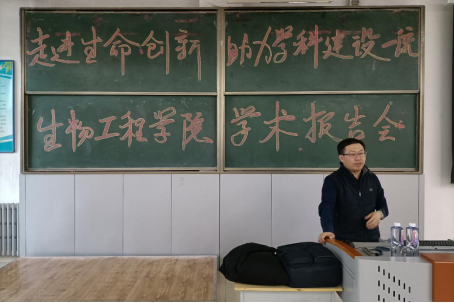 走进生命创新 助力学科建设一流
生物工程学院 学术报告会